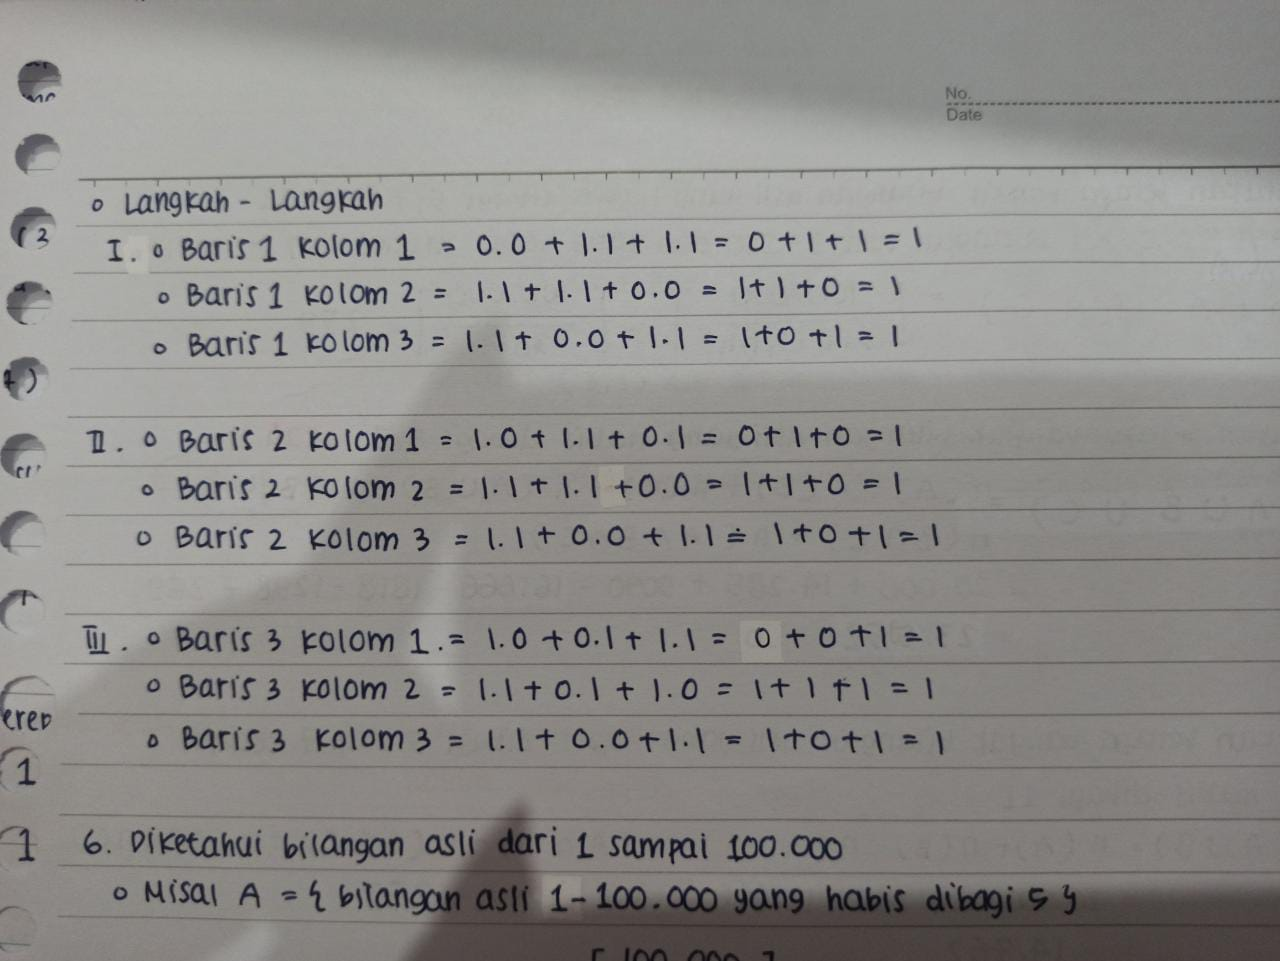 No.
Date
o Langkah - Langkah
I. o Baris 1 kolom 1 = 0.0 + 1.1 + 1.1 = 0 + 1 + 1 = 1
o Baris 1 kolom 2 = 1.1 + 1.1 + 0.0 = 1+1+0 = 1
o Baris 1 kolom 3 = 1.1 + 0.0 + 1.1 = 1+0+1 = 1
II. o Baris 2 kolom 1 = 1.0 + 1.1 + 0.1 = 0+1+0 = 1
o Baris 2 kolom 2 = 1.1 + 1.1 + 0.0 = 1+1+0 = 1
o Baris 2 kolom 3 = 1.1 + 0.0 + 1.1 = 1+0+1 = 1
III. o Baris 3 kolom 1. = 1.0 + 0.1 + 1.1 = 0 + 0 + 1 = 1
o Baris 3 kolom 2 = 1.1 + 0.1 + 1.0 = 1+1+1 = 1
o Baris 3 kolom 3 = 1.1 + 0.0 + 1.1 = 1+0+1 = 1
6. Diketahui bilangan asli dari 1 sampai 100.000
o Misal A = { bilangan asli 1-100.000 yang habis dibagi 5 }